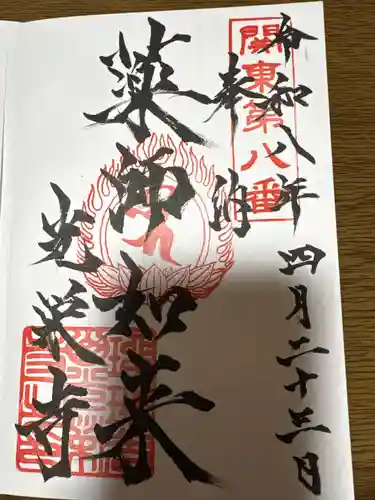 令和八年 四月二十三日
關東第八番
奉
薬師如来
光栄寺